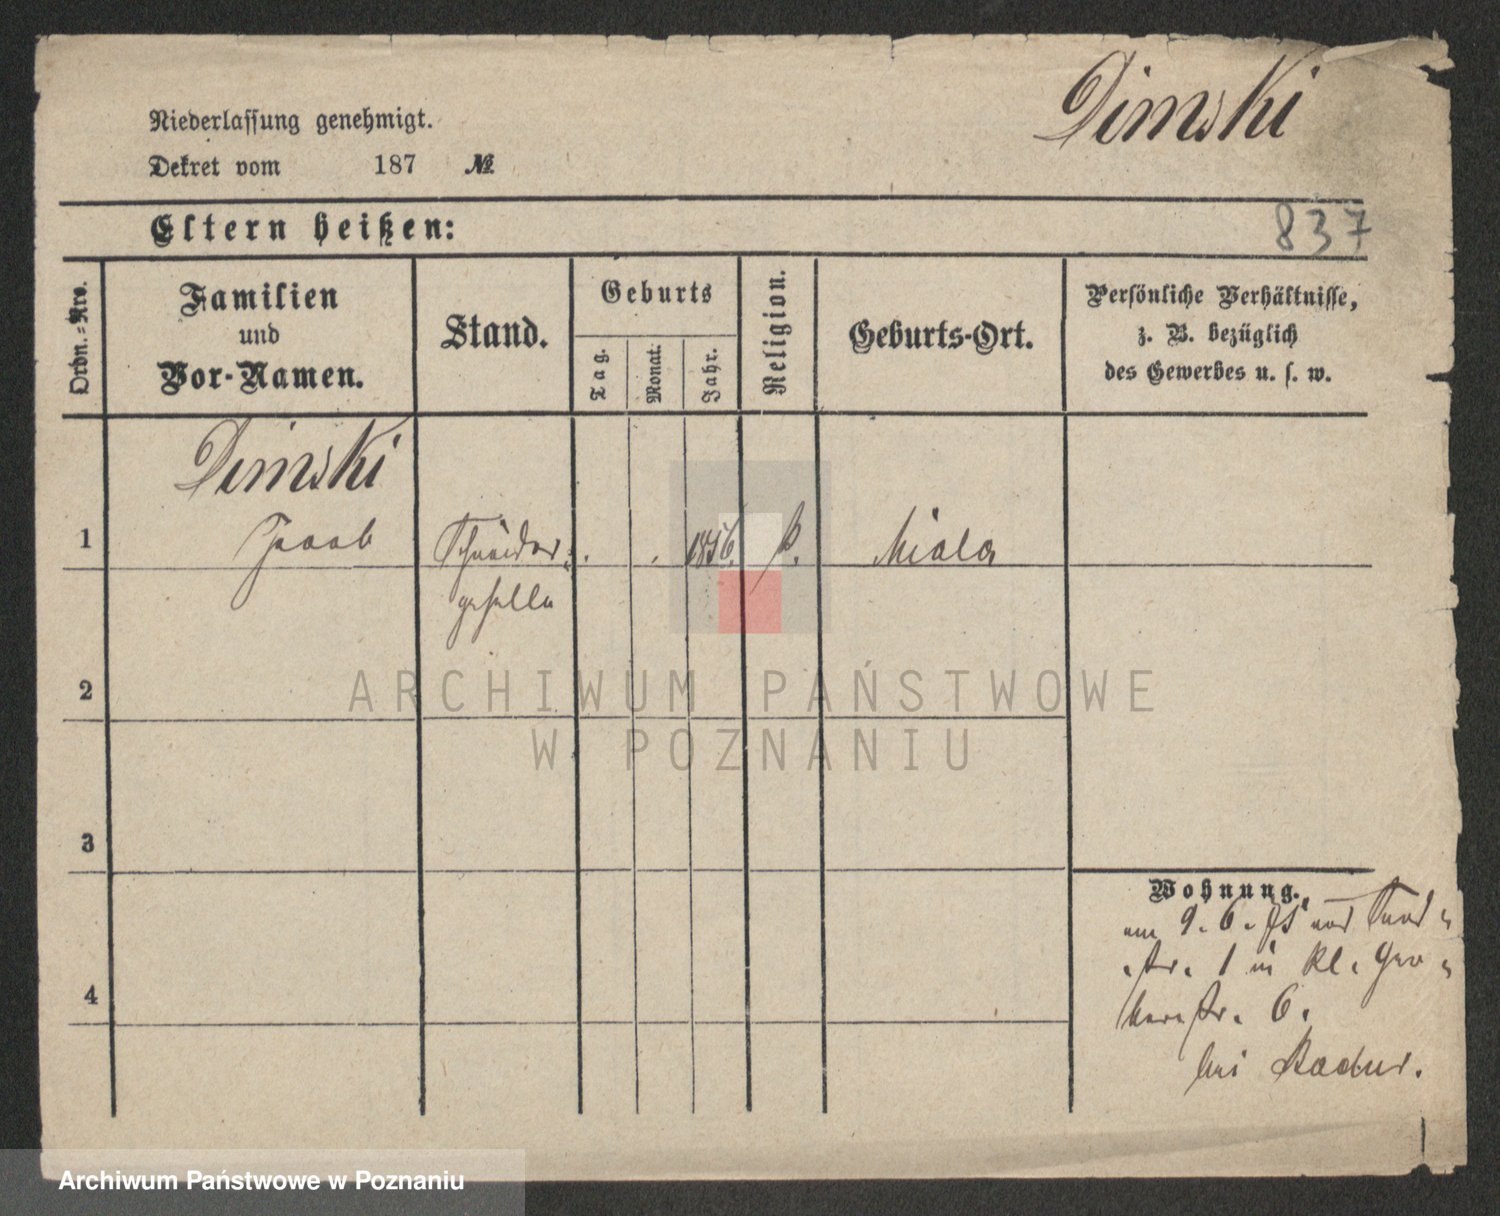 Dimski
Niederlassung genehmigt.
Dekret vom 187 №
Eltern heißen:
837
Ordn.-Nro.
Familien
und
Vor-Namen.
Stand.
Geburts
Tag.
Monat.
Jahr.
Religion.
Geburts-Ort.
Persönliche Verhältnisse,
z. B. bezüglich
des Gewerbes u. s. w.
Dimski
1 Jacob Schneider- . . k. Miala
geselle
2
3
4
Wohnung.
am 9. 6. von
str. 1 in kl. Ger-
berstr. 6.
bei
ARCHIWUM PAŃSTWOWE
W POZNANIU
Archiwum Państwowe w Poznaniu